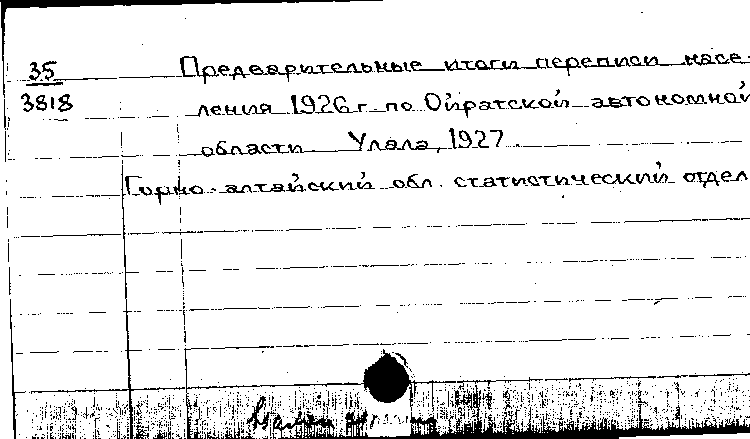 35
3818
Предварительные итоги переписи насе-
ления 1926 г по Ойратской автономной
области. Улала, 1927.
Горно-алтайский обл. статистический отдел